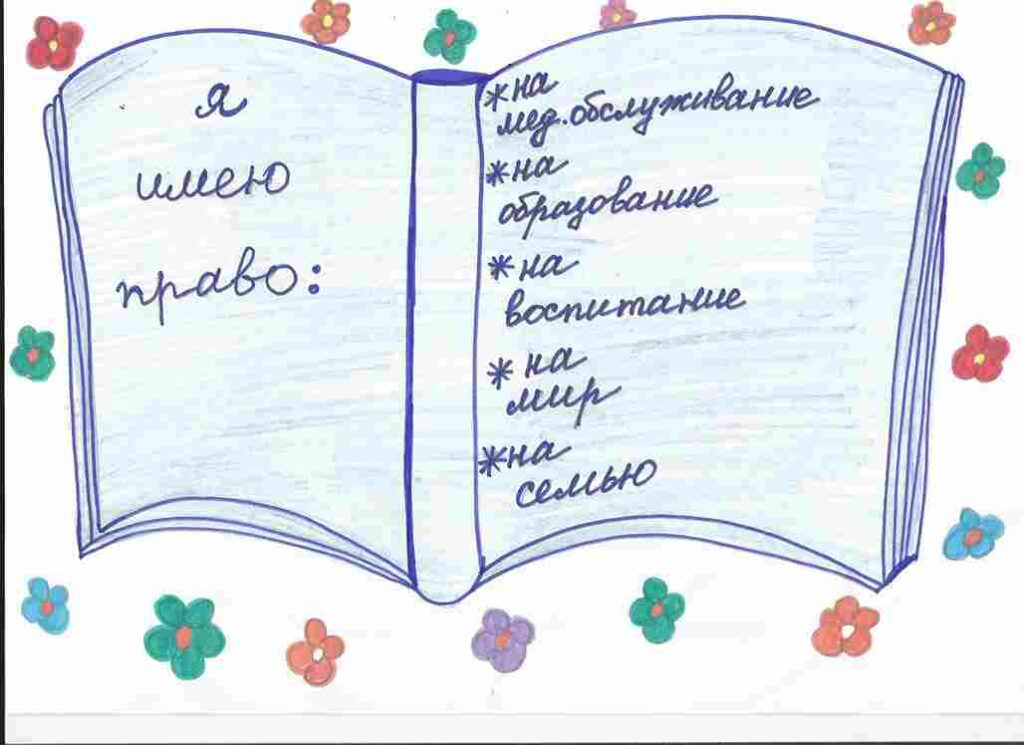 я
имею
право:
*на
мед.обслуживание
*на
образование
*на
воспитание
*на
мир
*на
семью